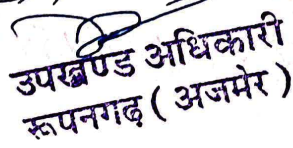 उपखण्ड अधिकारी
रूपनगढ़ ( अजमेर )